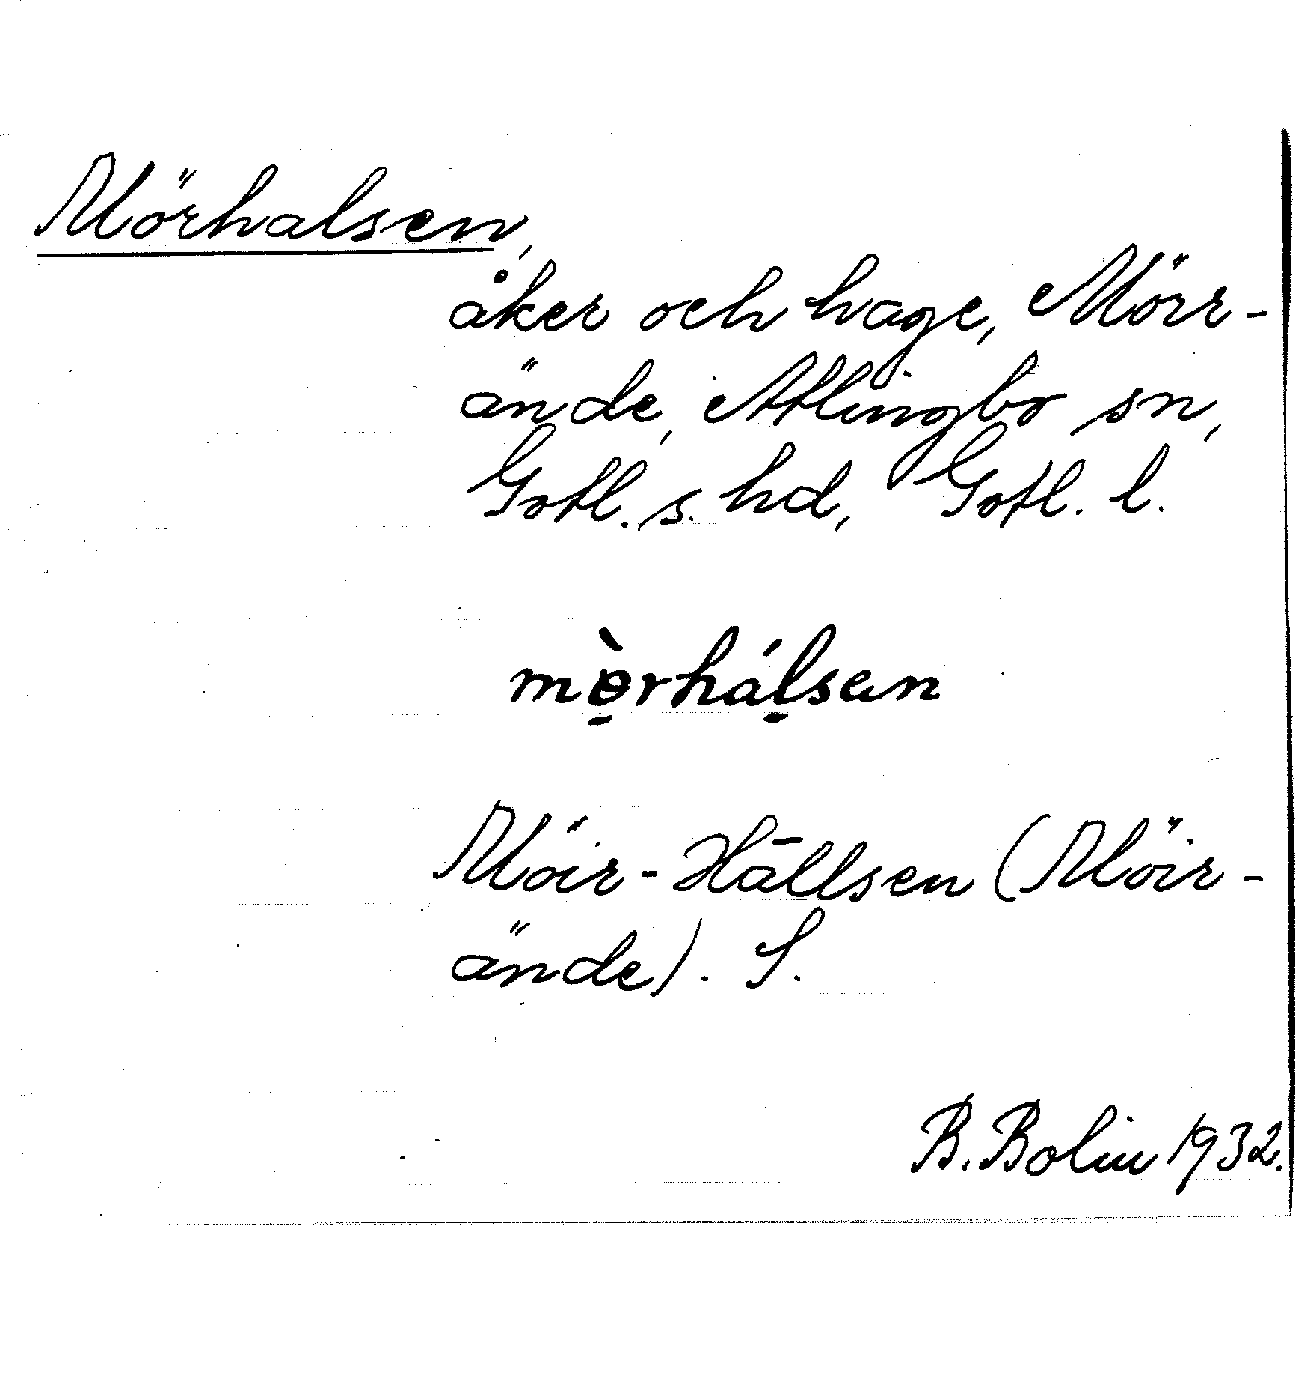 Mörhalsen,
åker och hage, Mörr-
ände, Atlingbo sn,
Gotl. s. hd, Gotl. l.
mɵ̠̀rhál̠sən
Möir-Hāllsen (Möir-
ände). S.
B. Bolin 1932.